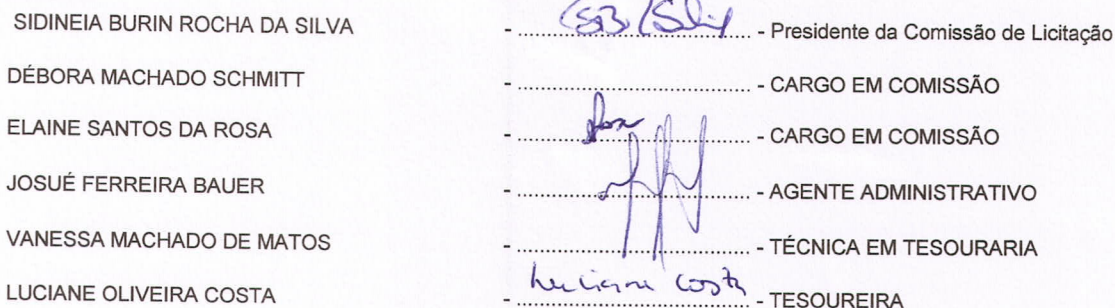 SIDINEIA BURIN ROCHA DA SILVA - ........................................ - Presidente da Comissão de Licitação
DÉBORA MACHADO SCHMITT - ........................................ - CARGO EM COMISSÃO
ELAINE SANTOS DA ROSA - ........................................ - CARGO EM COMISSÃO
JOSUÉ FERREIRA BAUER - ........................................ - AGENTE ADMINISTRATIVO
VANESSA MACHADO DE MATOS - ........................................ - TÉCNICA EM TESOURARIA
LUCIANE OLIVEIRA COSTA - Luciane Costa - TESOUREIRA